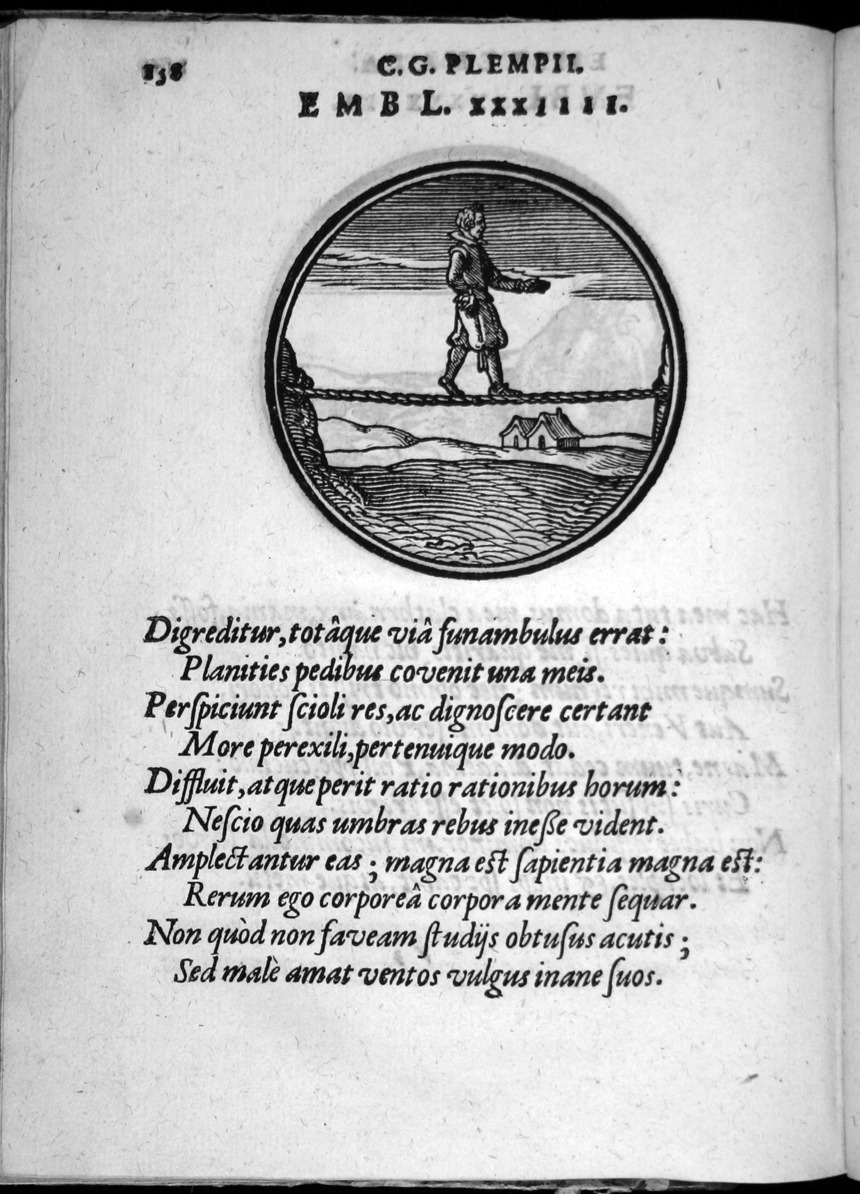 158
C. G. PLEMPII.
EMBL. XXXIIII.
Digreditur, totâque viâ funambulus errat:
Planities pedibus covenit una meis.
Perſpiciunt ſcioli res, ac dignoſcere certant
More perexili, pertenuique modo.
Diffluit, atque perit ratio rationibus horum:
Neſcio quas umbras rebus ineſſe vident.
Amplectantur eas; magna eſt ſapientia magna eſt:
Rerum ego corporeâ corpora mente ſequar.
Non quòd non faveam ſtudijs obtuſus acutis;
Sed malè amat ventos vulgus inane ſuos.